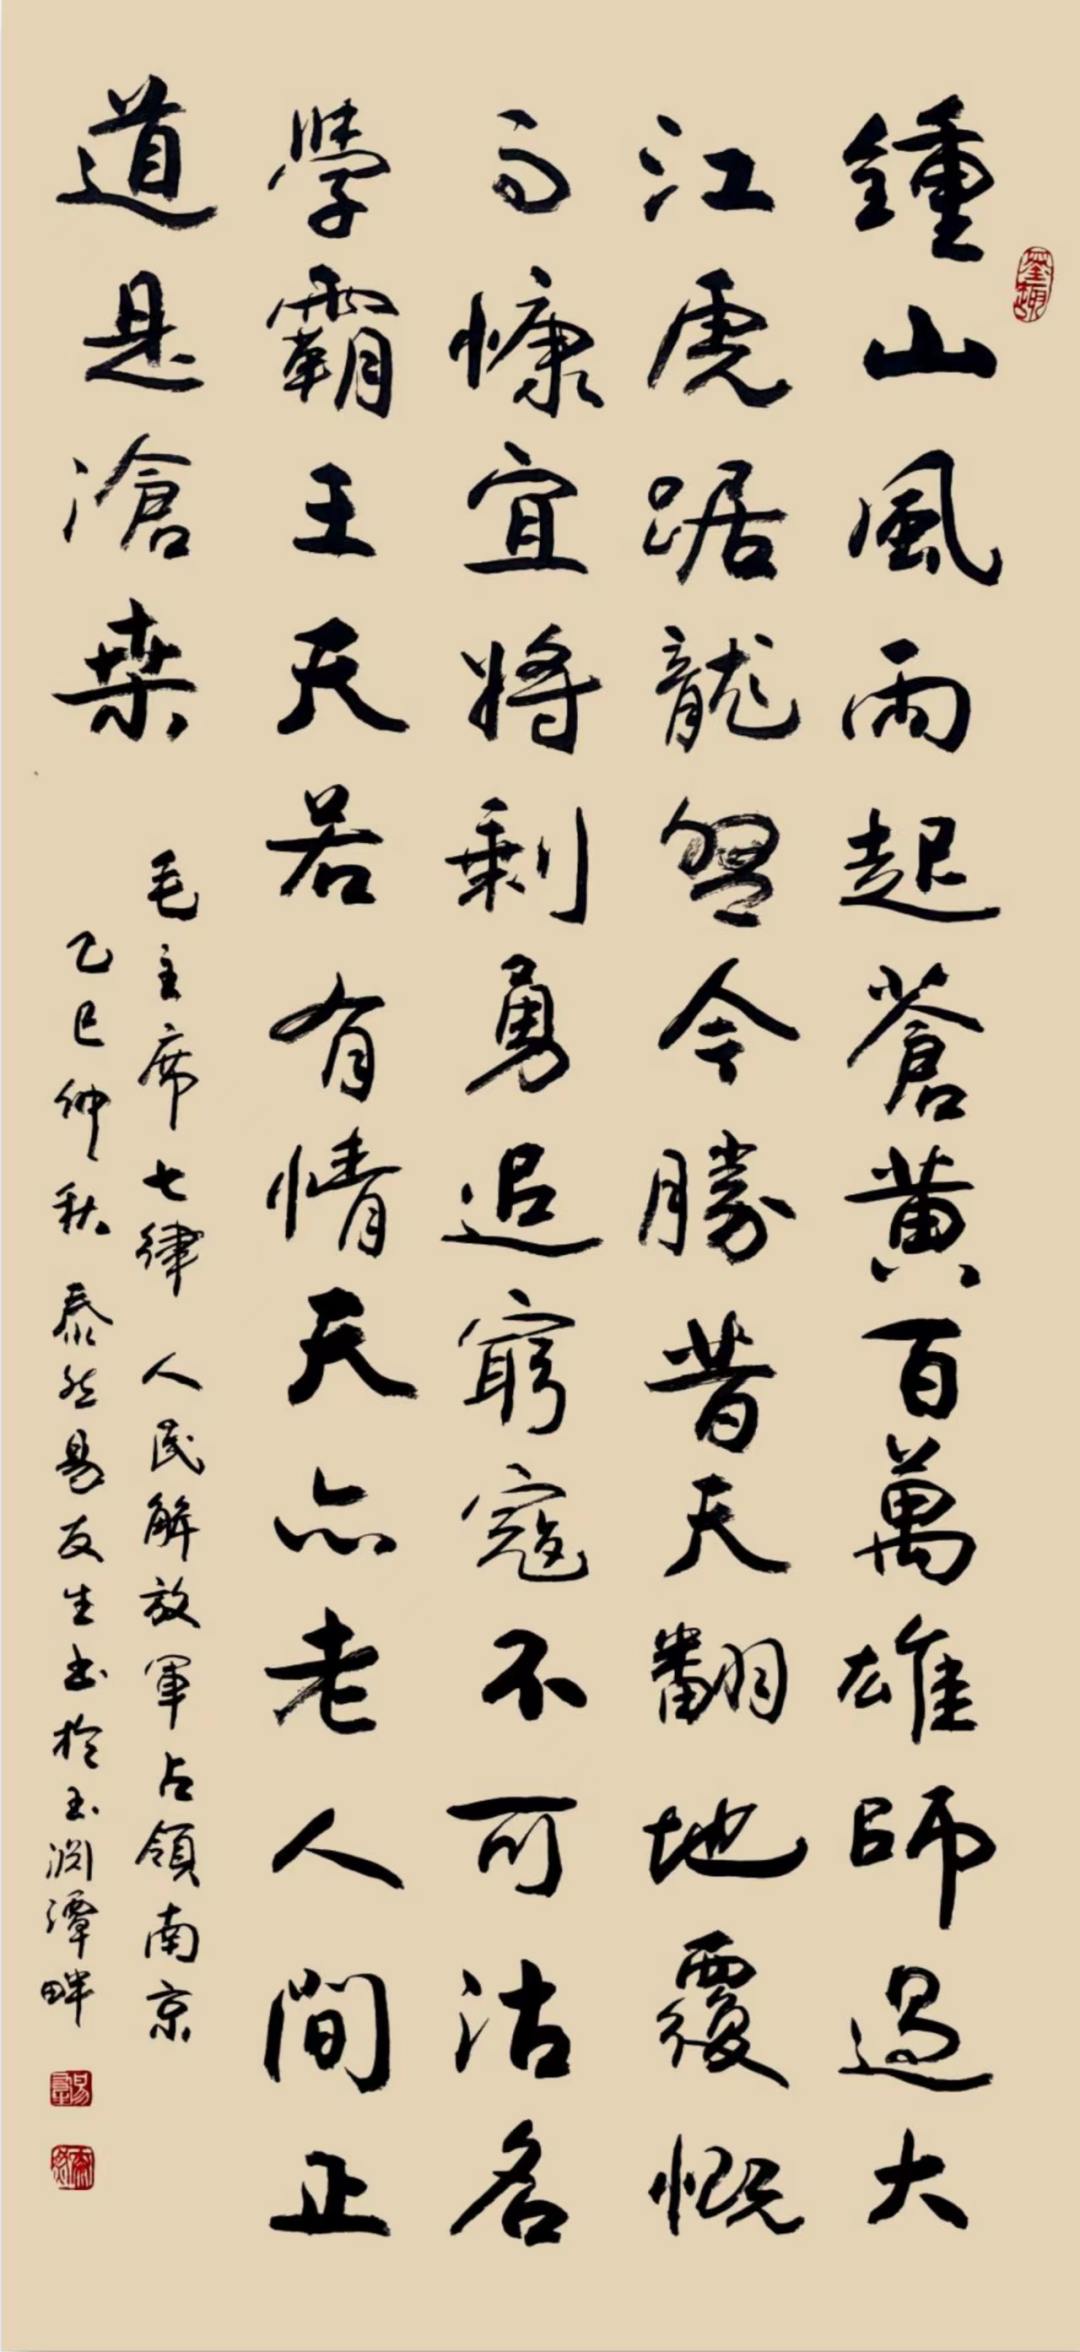 鍾山風雨起蒼黄百萬雄師過大
江虎踞龍盤今勝昔天翻地覆慨
而慷宜將剩勇追窮寇不可沽名
學霸王天若有情天亦老人間正
道是滄桑
毛主席七律 人民解放軍占領南京
乙巳仲秋 泰然易友生书於玉渊潭畔